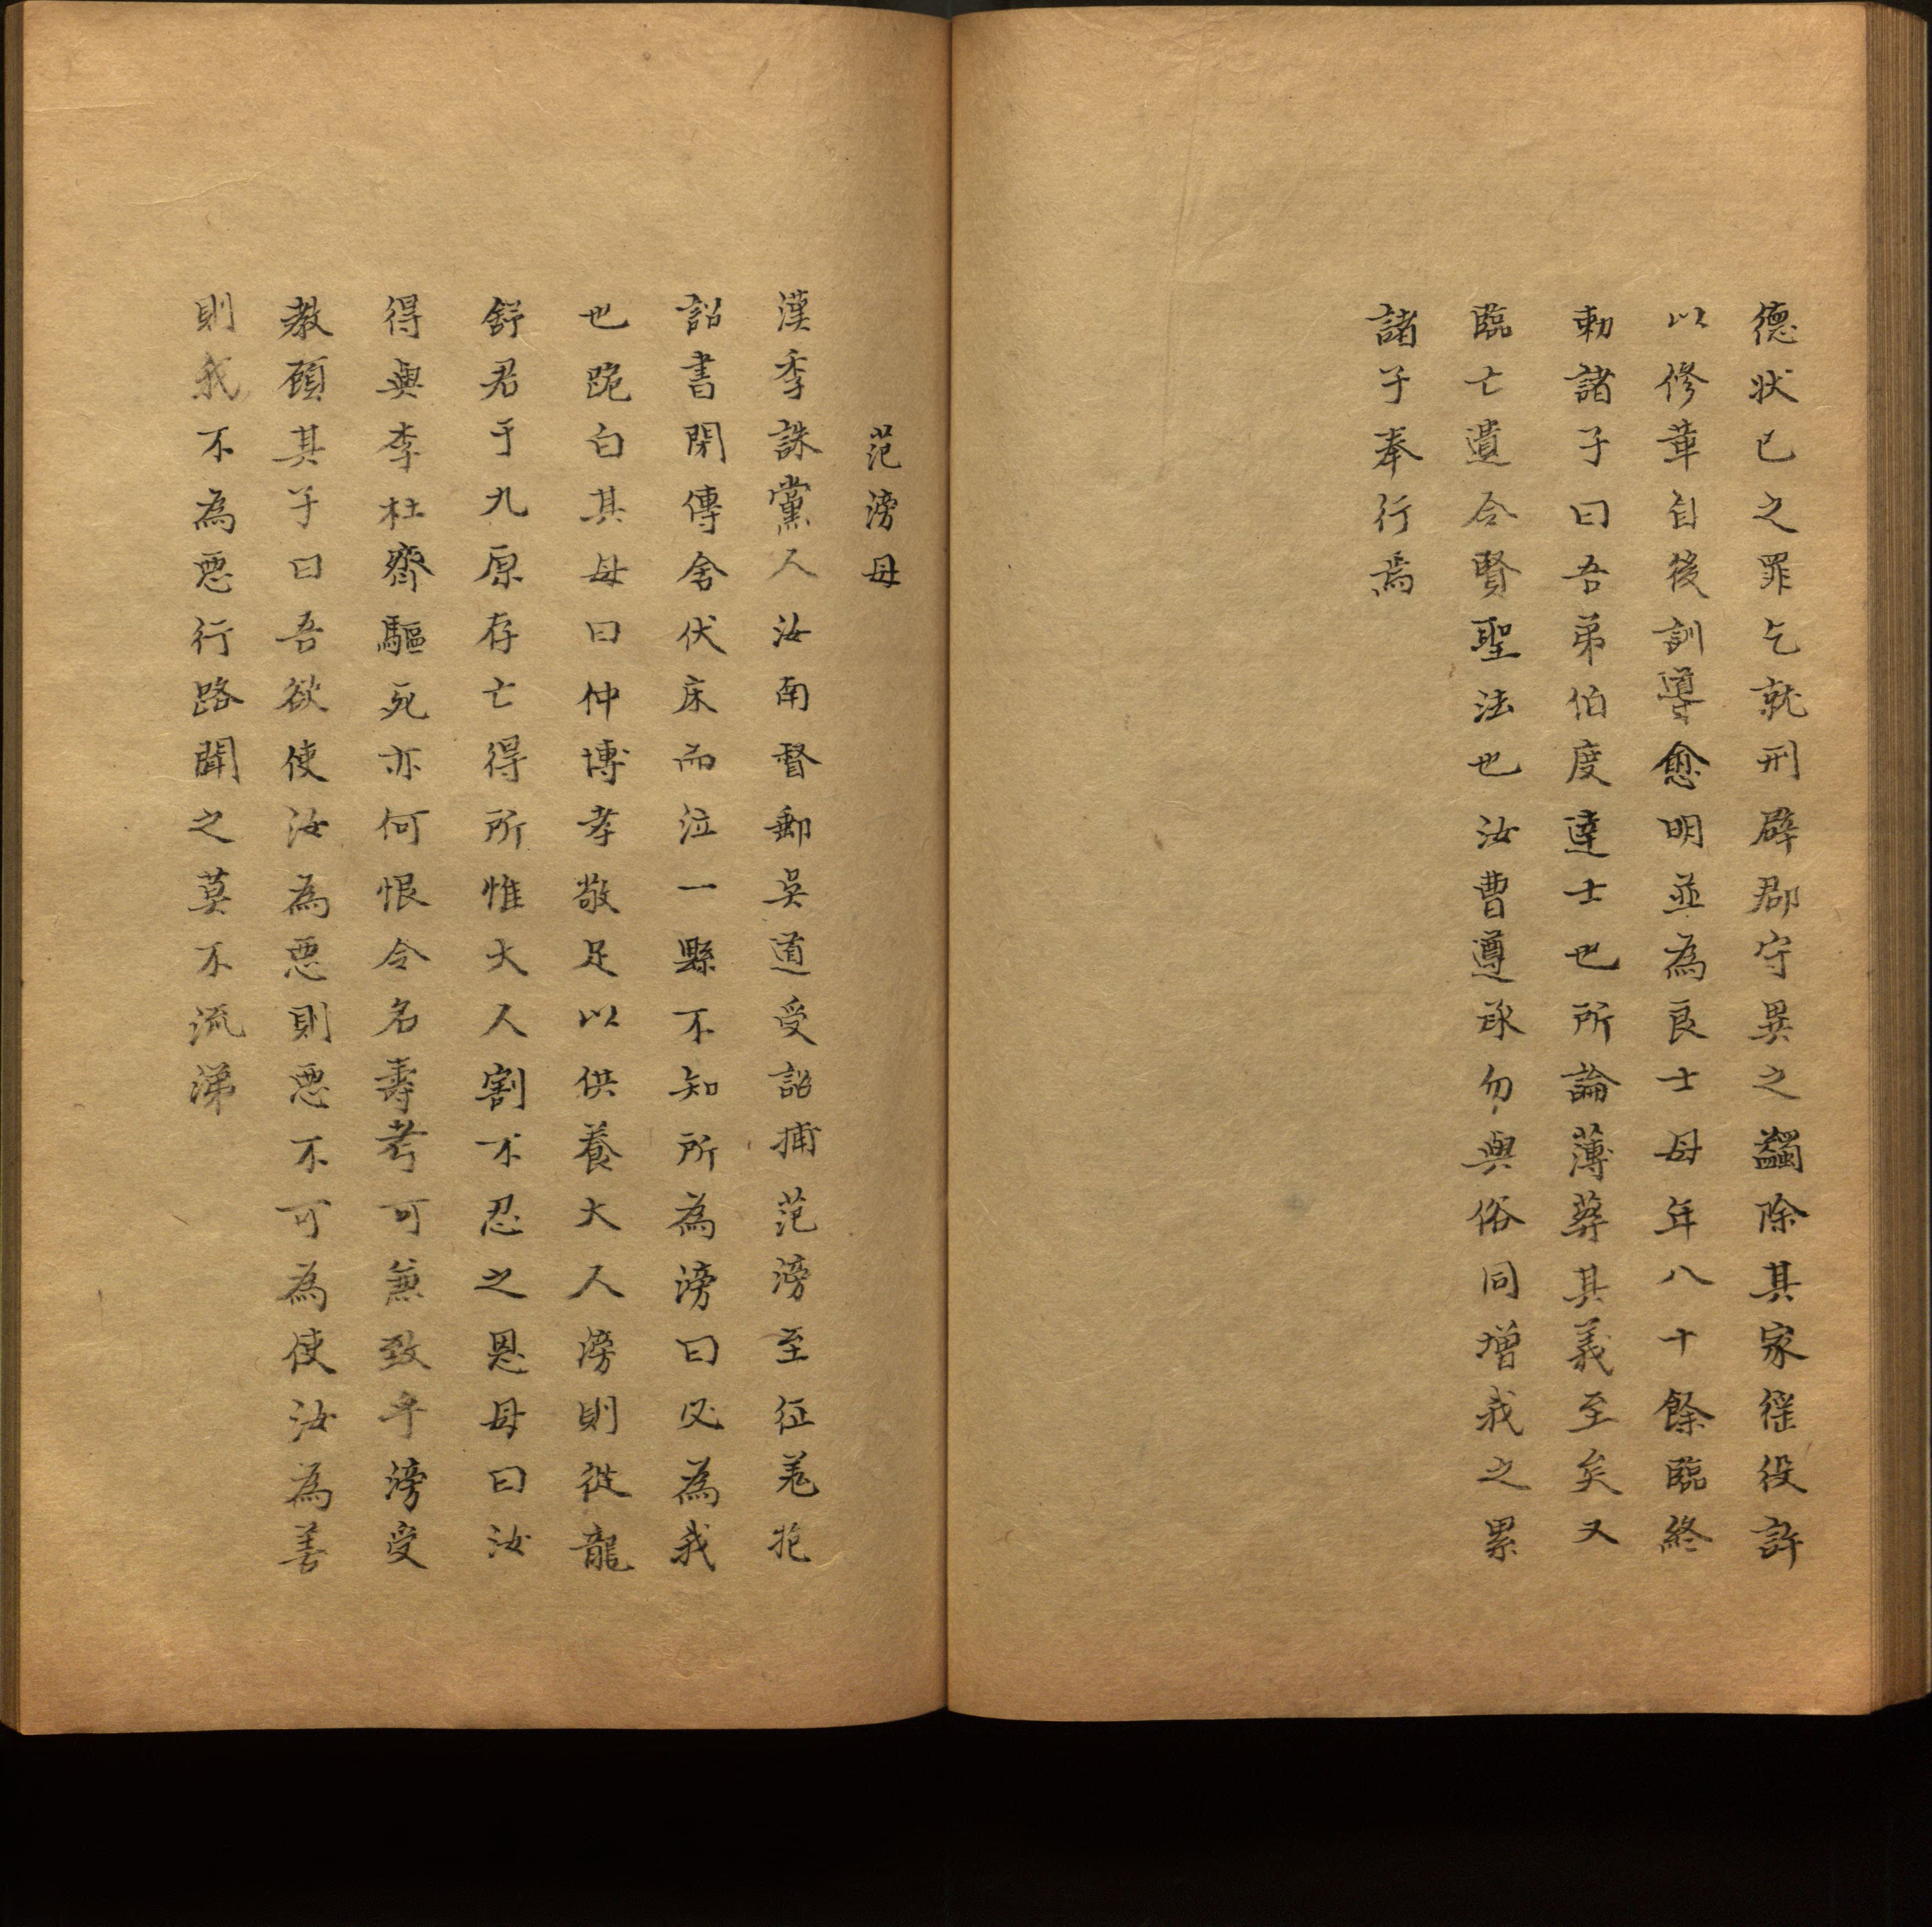 德状已之罪乞就刑辟郡守異之蠲除其家徭役許
以修革自後訓導愈明並為良士母年八十餘臨終
勅諸子曰吾弟伯度達士也所論薄葬其義至矣又
臨亡遺令賢聖法也汝曹遵承勿與俗同增我之累
諸子奉行焉
范滂母
漢季誅黨人汝南督郵吳道受詔捕范滂至征羌抱
詔書閉傳舍伏床而泣一縣不知所為滂曰必為我
也跪白其母曰仲博孝敬足以供養大人滂則從龍
舒君于九原存亡得所惟大人割不忍之恩母曰汝
得與李杜齊驅死亦何恨令名壽考可兼致乎滂受
教顧其子曰吾欲使汝為惡則惡不可為使汝為善
則我不為惡行路聞之莫不流涕